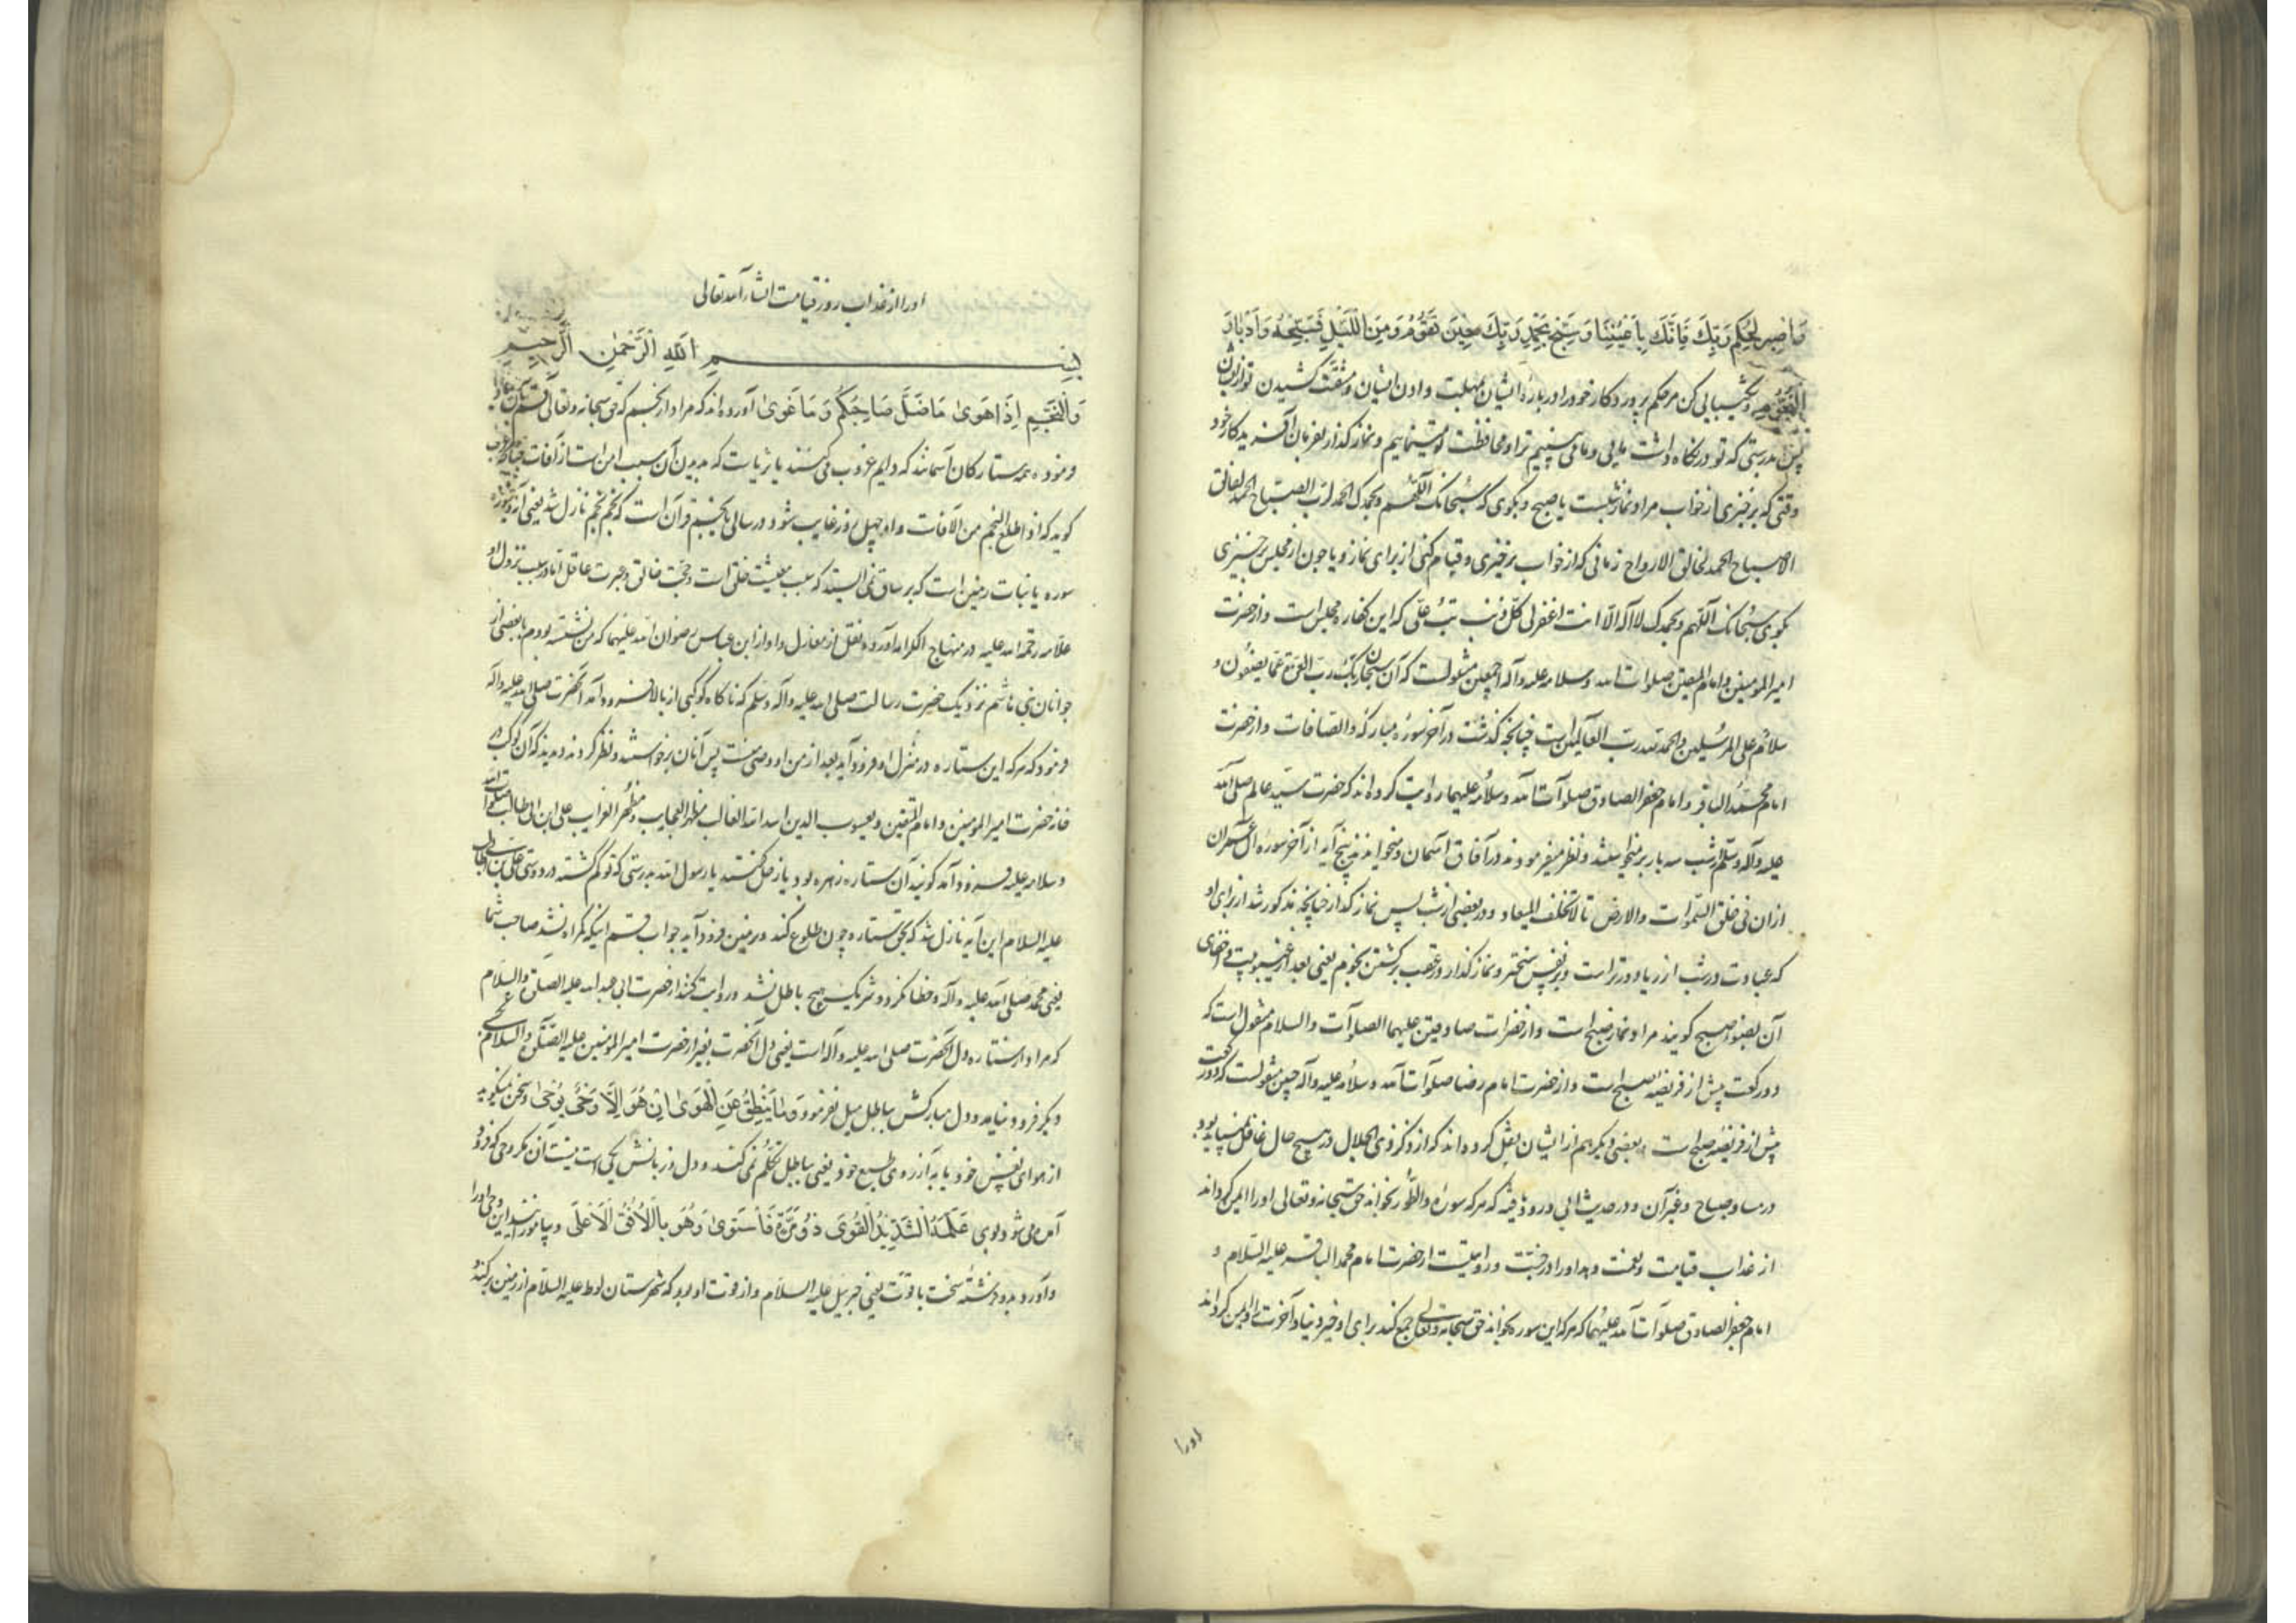 وَاصْبِرْ لِحُكْمِ رَبِّكَ فَاِنَّكَ بِاَعْيُنِنَا وَسَبِّحْ بِحَمْدِ رَبِّكَ حِينَ تَقُومُ وَمِنَ اللَّيْلِ فَسَبِّحْهُ وَاِدْبَارَ
النُّجُومِ و شكيبايى كن مر حكم پروردكار خود را در بارهٔ ايشان بمهلت دادن ايشان و مشقت كشيدن تو از ايشان
پس بدرستى كه تو در نكاه داشت مايى و ما مى بينيم ترا و محافظت تو مينماييم و نماز كذار بفرمان آفريدكار خود
وقتى كه برخيزى از خواب مراد نماز شبست يا صبح و بكوى كه سبحانك اللهم وبحمدك الحمد لرب الصباح الحمد لفالق
الاصباح الحمد لخالق الارواح زمانى كه از خواب برخيزى و قيام كنى از براى نماز و يا چون از مجلس برخيزى
بكوى سبحانك اللهم وبحمدك لا اله الا انت اغفر لى كل ذنب تب علّى كه اين كفارهٔ مجلس است و از حضرت
امير المومنين و امام المتقين صلوات الله وسلامه عليه و آله اجمعين منقولست كه آن سبحان ربك رب العزة عما يصفون و
سلام على المرسلين والحمد لله رب العالمين است چنانچه كذشت در آخر سورهٔ مباركه والصافات و از حضرت
امام محمد الباقر و امام جعفر الصادق صلوات الله وسلامه عليهما روايت كرده اند كه حضرت سيد عالم صلى الله
عليه وآله وسلم از شب سه بار برميخواستند و نظر ميفرمودند در آفاق آسمان و ميخواندند پنج آيه از آخر سورهٔ ال عمران
از ان فى خلق السموات والارض تا لا تخلف الميعاد و در بعضى از شب پس نماز كذار چنانچه مذكور شد از براى او
كه عبادت در شب از ريا دورتر است و بر نفس سختر و نماز كذار در عقب بركشتن نجوم يعنى بعد از غيبوبيت و اخفاى
آن بضوء صبح كويند مراد نماز صبح است و از حضرات صادقين عليهما الصلوات والسلام منقول است كه
دو ركعت پيش از فريضهٔ صبح است و از حضرت امام رضا صلوات الله وسلامه عليه و آله چنين منقولست كه دو ركعت
پيش از فريضهٔ صبح است و بعضى ديكر هم از ايشان نقل كرده اند كه از ذكر ذى الجلال در هيچ حال غافل نميبايد بود
در مسا و صباح و غير آن و در حديث ابى درو ذفيه كه هر كه سورهٔ والطور بخواند حق سبحانه وتعالى او را ايمن كرداند
از عذاب قيامت و نعمت دهد او را در جنت و روايتست از حضرت امام محمد الباقر عليه السلام و
امام جعفر الصادق صلوات الله عليهما كه هر كه اين سوره بخواند حق سبحانه وتعالى جمع كند براى او خير دنيا و آخرت و ايمن كرداند
اورا
او را از عذاب روز قيامت انشاء الله تعالى
بِسْمِ اللهِ الرَّحْمٰنِ الرَّحِيمِ
وَالنَّجْمِ اِذَا هَوٰى مَا ضَلَّ صَاحِبُكُمْ وَمَا غَوٰى آورده اند كه مراد از نجم كه حق سبحانه وتعالى قسم بآن ياد
فرموده همه ستاركان آسمانند كه دايم غروب مى كنند يا ثريا ست كه بديدن آن سبب امن است از آفات چنانكه عرب
كويد كه اذا طلع النجم من الآفات و او چهل روز غايب شود در سالى يا نجم قرآن است كه نجم نجم نازل شد يعنى آيه آيه و سوره
سوره يا نبات زمين است كه بر ساق نمى ايستد كه سبب معيشت خلق است و حجت خالق و عبرت عاقل اما در سبب نزول او
علامه رحمة الله عليه در منهاج الكرامه آورده و نقل از مغازلى و او از ابن عباس رضوان الله عليهما كه من نشسته بودم با بعضى از
جوانان بنى هاشم نزديك حضرت رسالت صلى الله عليه وآله وسلم كه ناكاه كوكبى از بالا فرود آمد آنحضرت صلى الله عليه وآله
فرمود كه هر كه اين ستاره در منزل او فرود آيد بعد از من او وصى منست پس آنان برخواستند و نظر كردند ديدند كه آن كوكب در
خانهٔ حضرت امير المومنين و امام المتقين و يعسوب الدين اسد الله الغالب مظهر العجايب و مظهر الغرايب على ابن ابى طالب صلوات الله
وسلامه عليه فرود آمد كويند آن ستاره زهره بود يا زحل كفتند يا رسول الله بدرستى كه تو كم كشته در دوستى على بن ابى طالب
عليه السلام اين آيه نازل شد كه بحق ستاره چون طلوع كند و بر زمين فرود آيد جواب قسم اينكه كمراه نشد صاحب شما
يعنى محمد صلى الله عليه وآله و خطا نكرد و شريك هيچ باطل نشد و روايت كنند از حضرت ابى عبد الله عليه الصلوة والسلام
كه مراد از ستاره دل آنحضرت صلى الله عليه وآله است يعنى دل آنحضرت بغير از حضرت امير المومنين عليه الصلوة والسلام بجاى
ديكر فرود نيامد و دل مباركش بباطل ميل نفرمود وَمَا يَنْطِقُ عَنِ الْهَوٰى اِنْ هُوَ اِلَّا وَحْىٌ يُوحٰى و سخن نميكويد
از هواى نفس خود يا به آرزوى طبع خود يعنى بباطل تكلم نمى كند و دل و زبانش يكى است نيست آن مكر وحى كه فرود
آمده مى شود بوى عَلَّمَهُ شَدِيدُ الْقُوٰى ذُو مِرَّةٍ فَاسْتَوٰى وَهُوَ بِالْاُفُقِ الْاَعْلٰى و بياموزانيد اين وحى او را
و آورد بدو فرشتهٔ سخت با قوت يعنى جبرئيل عليه السلام و از قوت او بود كه شهرستان لوط عليه السلام از زمين بركند